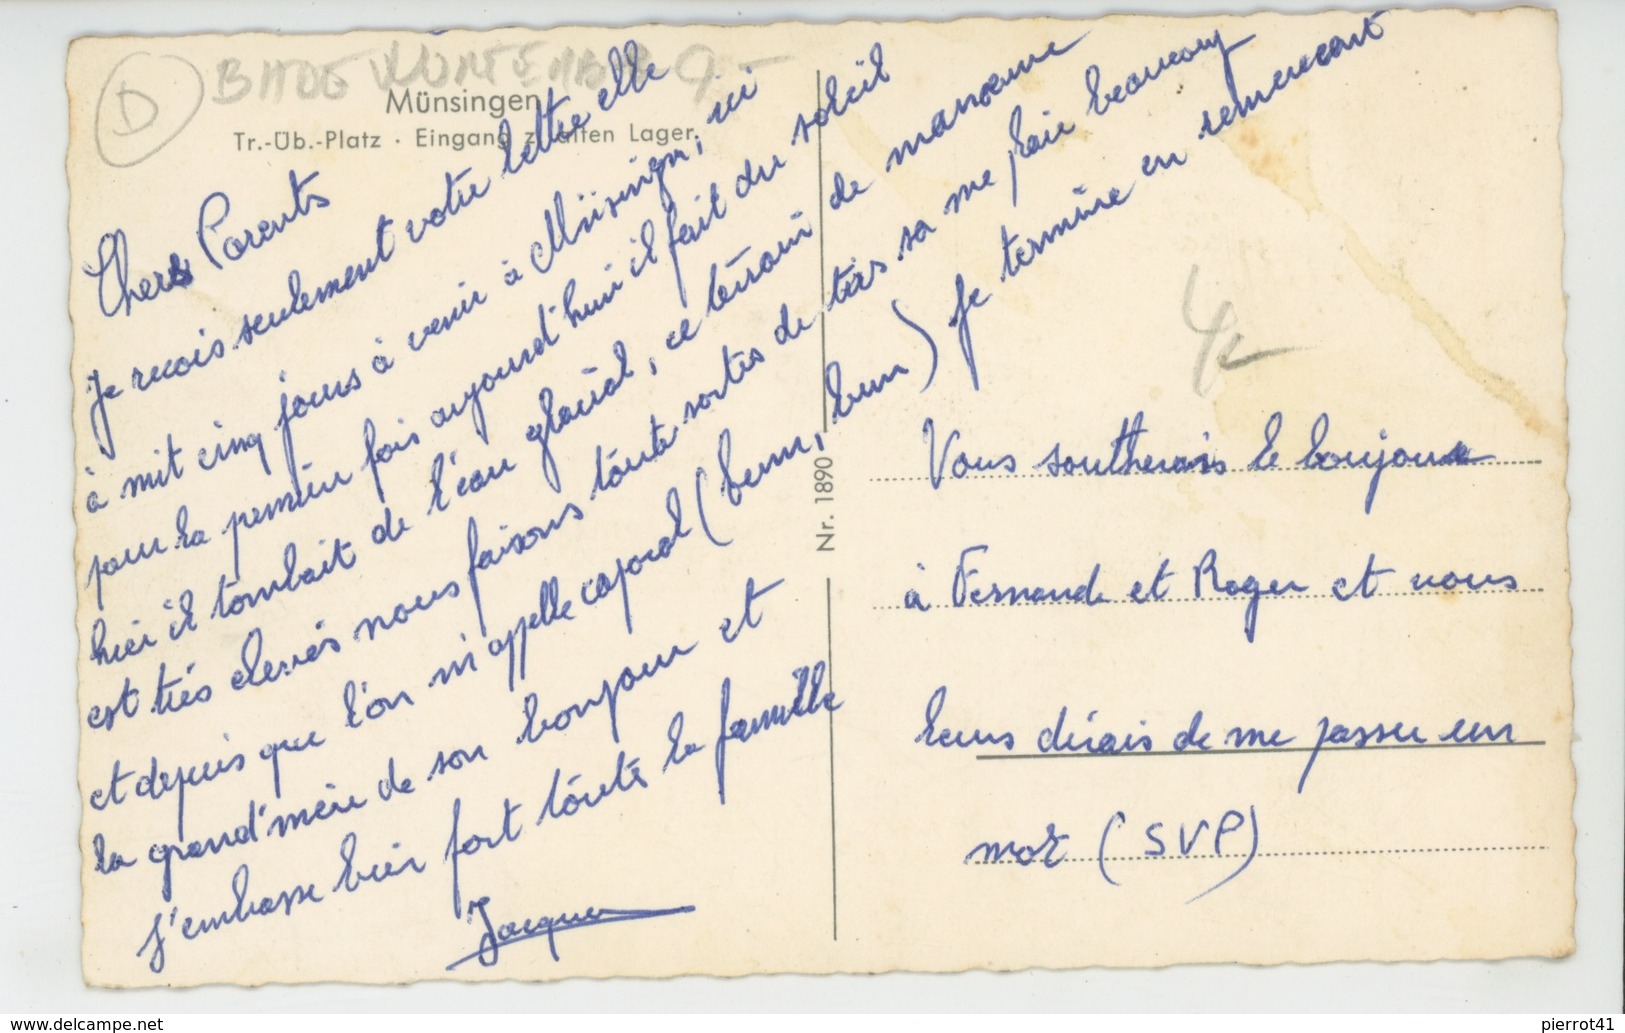 D BADE WURTEMBERG
Münsingen
Tr.-Üb.-Platz · Eingang z. alten Lager
Chers Parents
je recois seulement votre lettre elle
à mit cinq jours à venir à Münsingen, ici
pour la premier fois aujourd'hui il fait du soleil
hier il tombait de l'eau glacial, ce térrain de manoeuvre
est très élevés nous faisons toute sortes de tirs sa me plaie beaucoup
et depuis que l'on m'appelle caporal (hum, hum) Je termine en remerciant
la grand'mère de son bonjour et
j'embrasse bien fort toute la famille
Jacques
Nr. 1890
Vous souhterais le bonjour
à Fernande et Roger et vous
leurs dirais de me passer un
mot (SVP)
pierrot41
https://www.delcampe.net